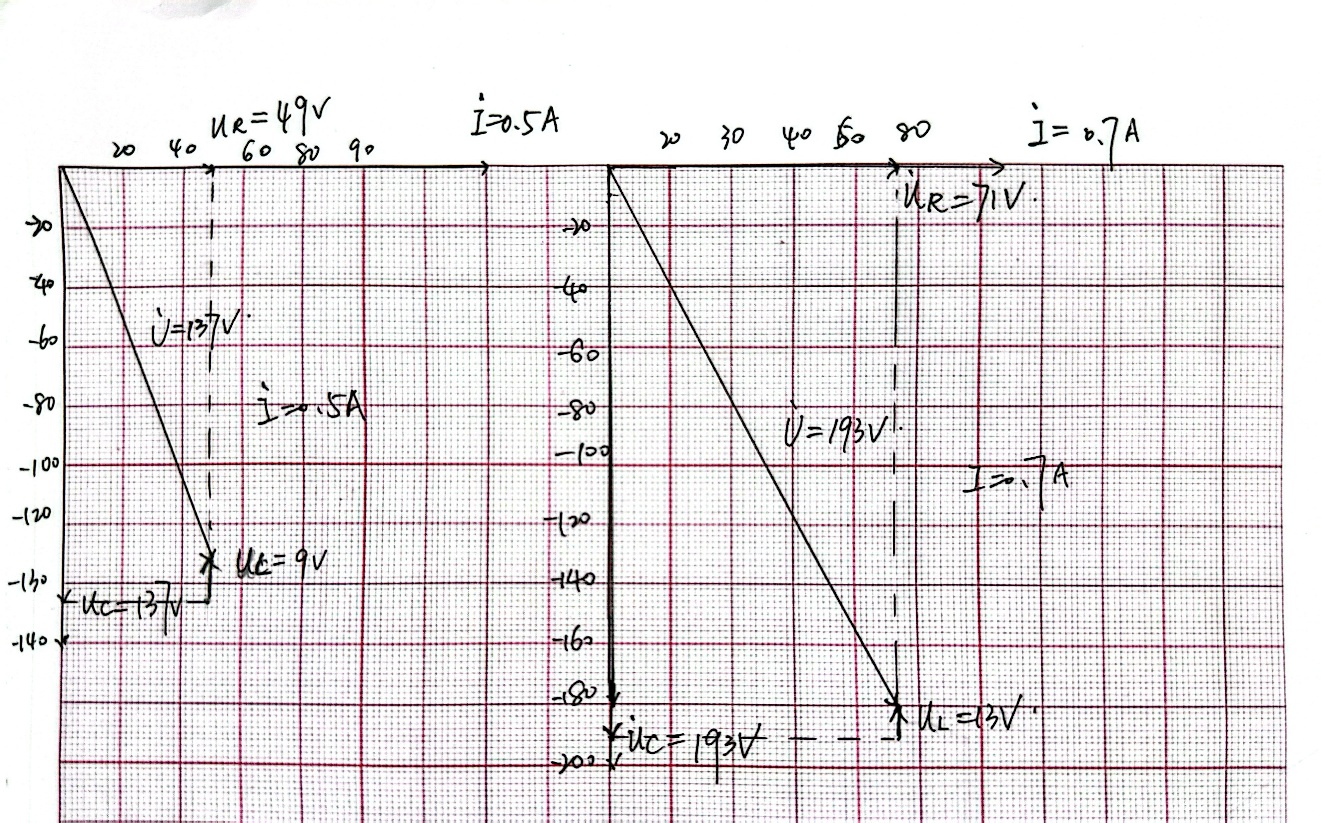 U̇R=49V
İ=0.5A
20 40 60 80 90
-20
-40
-60
-80
-100
-120
-130
-140
U̇=137V
İ=0.5A
UL=9V
UC=137V
İ=0.7A
20 30 40 50 80
U̇R=71V
-20
-40
-60
-80
-100
-120
-140
-160
-180
-200
U̇=193V
I=0.7A
UL=13V
U̇C=193V